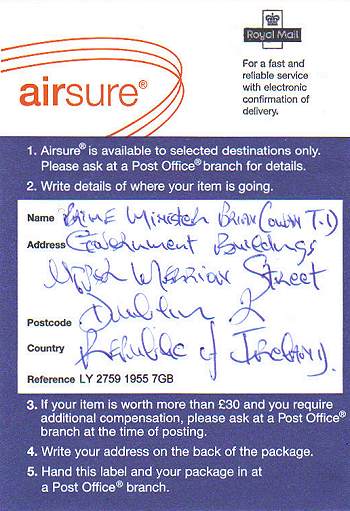 Royal Mail
airsure®
For a fast and
reliable service
with electronic
confirmation of
delivery.
1. Airsure® is available to selected destinations only.
Please ask at a Post Office® branch for details.
2. Write details of where your item is going.
Name Prime Minister Brian Cowan T.D
Address Government Buildings
Upper Merrion Street
Dublin 2
Postcode
Country Republic of Ireland.
Reference LY 2759 1955 7GB
3. If your item is worth more than £30 and you require
additional compensation, please ask at a Post Office®
branch at the time of posting.
4. Write your address on the back of the package.
5. Hand this label and your package in at
a Post Office® branch.